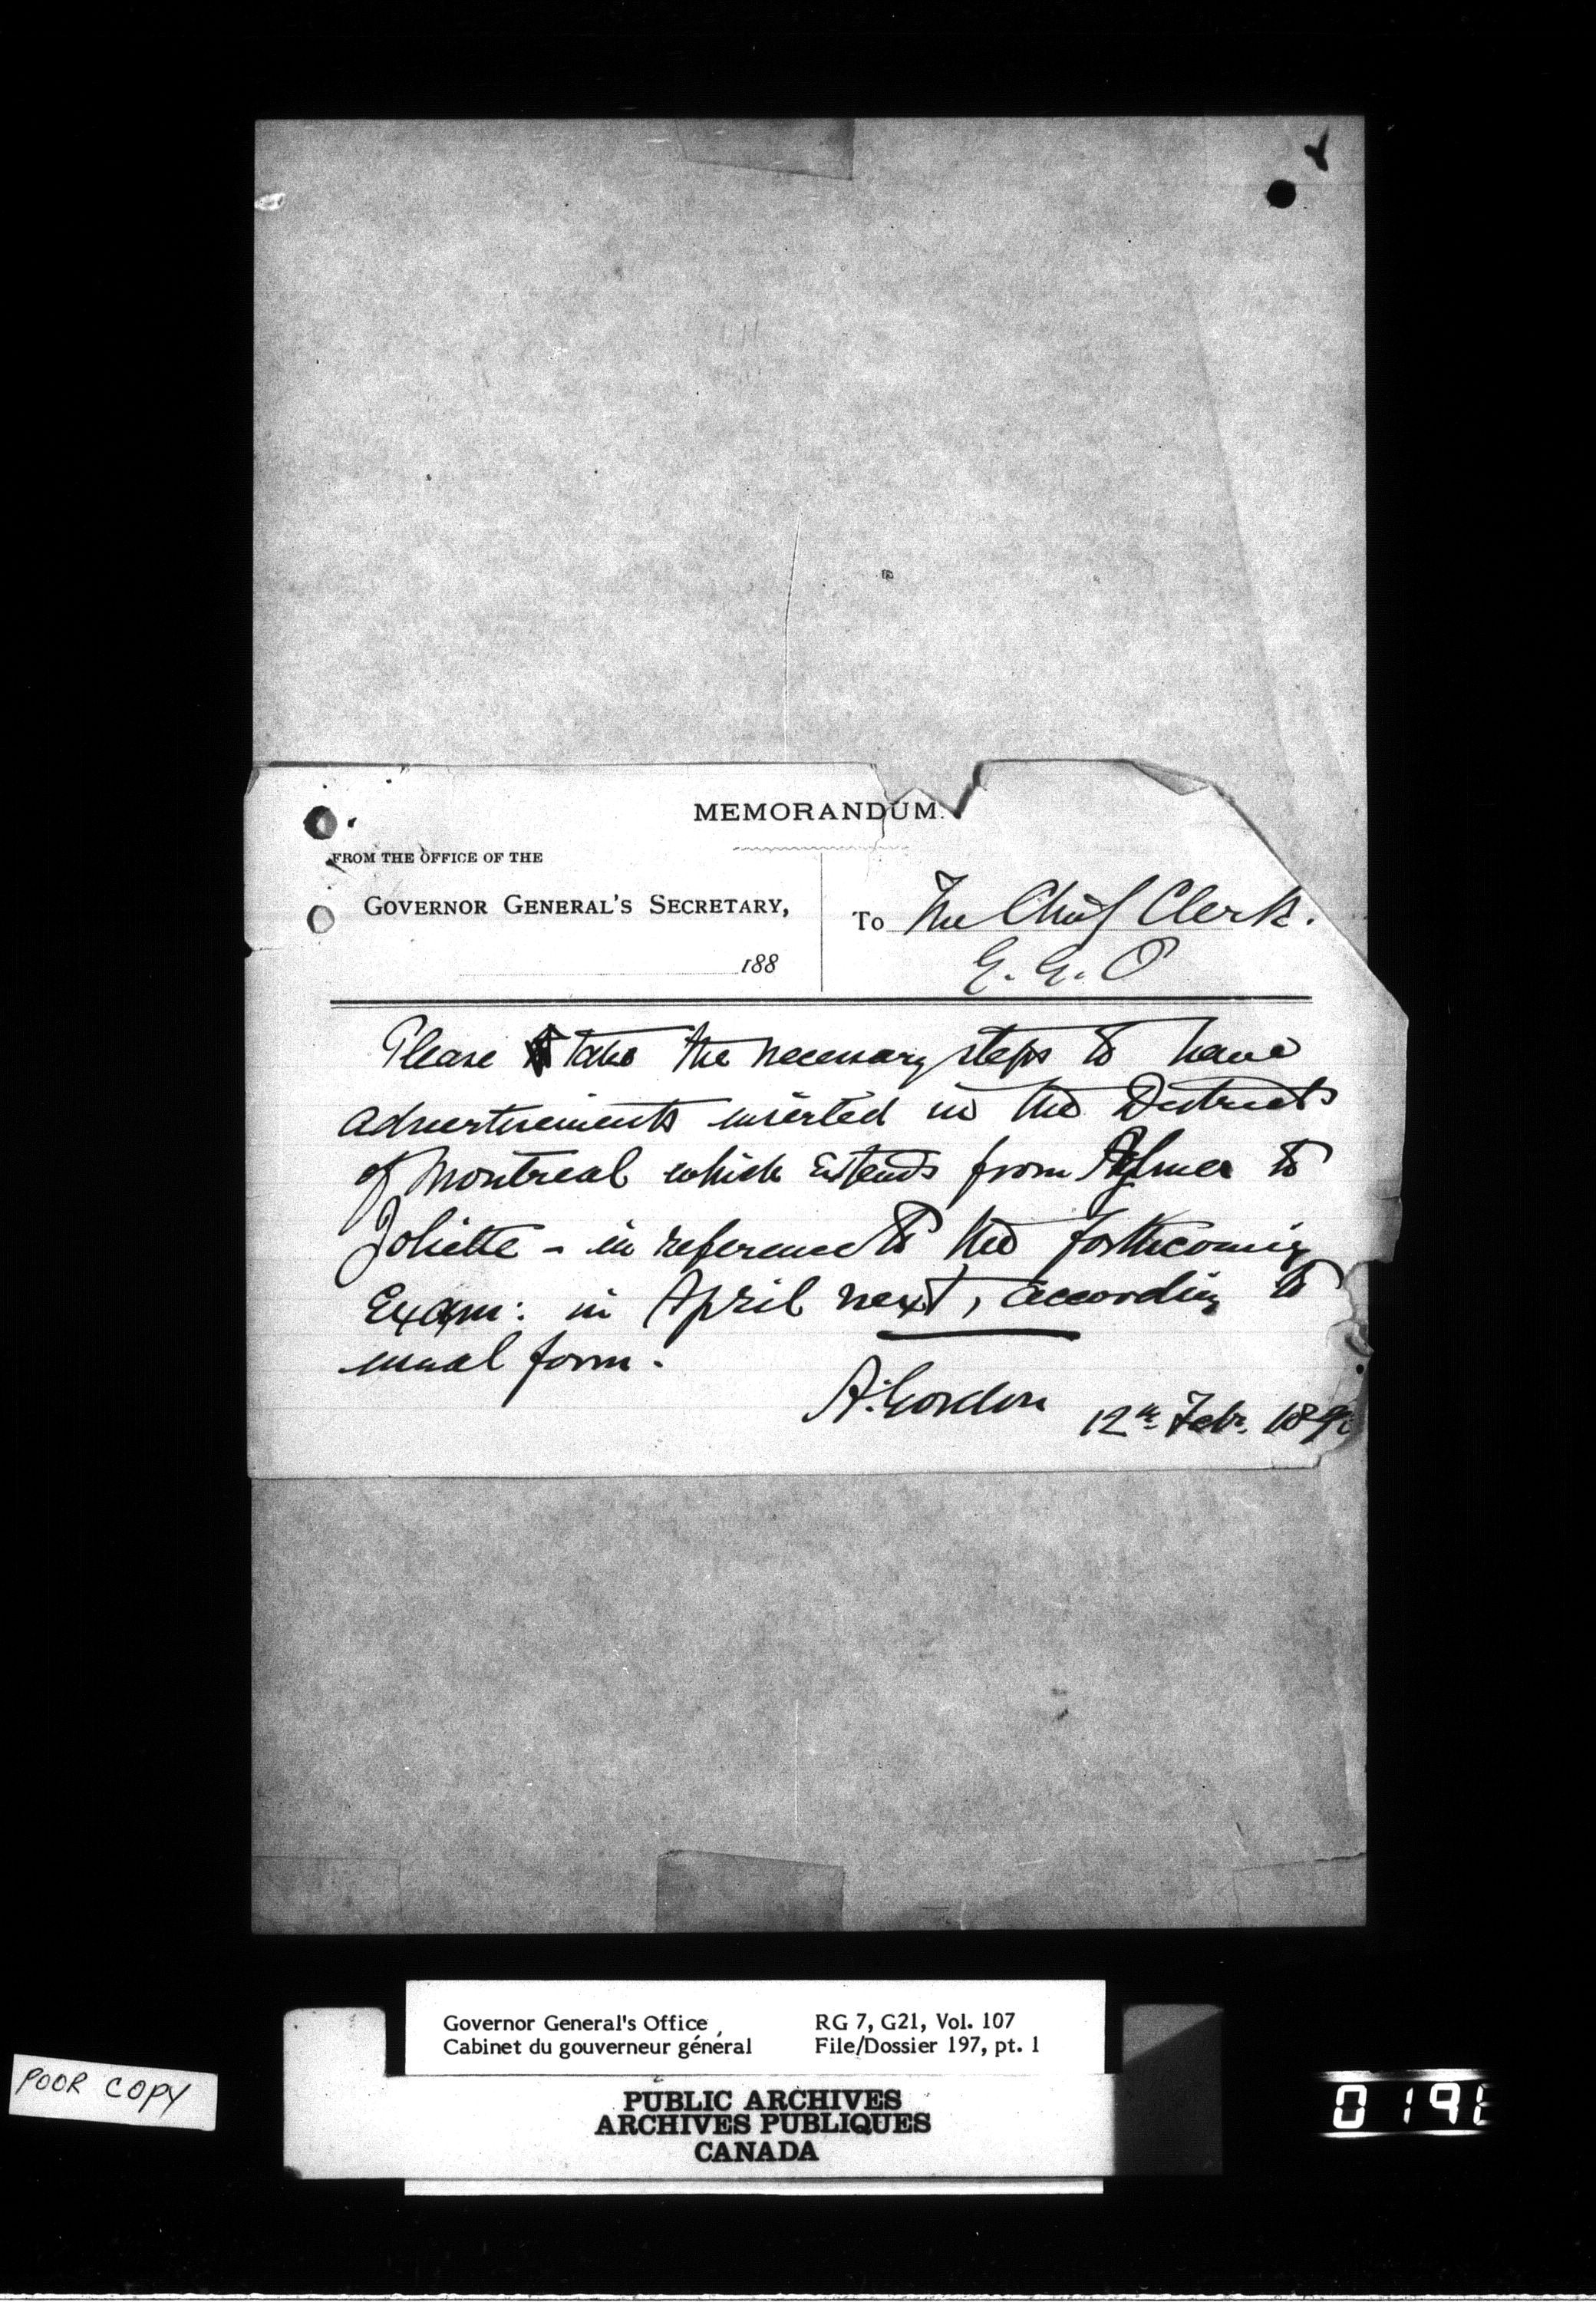 MEMORANDUM.
FROM THE OFFICE OF THE
GOVERNOR GENERAL'S SECRETARY,
188
To The Chief Clerk.
G. G. O
Please take the necessary steps to have
advertisements inserted in the District
of Montreal which extends from Aylmer to
Joliette - in reference to the forthcoming
Exam: in April next, according to
usual form.
A. Gordon 12th Febr. 189
Governor General's Office
Cabinet du gouverneur général
RG 7, G21, Vol. 107
File/Dossier 197, pt. 1
PUBLIC ARCHIVES
ARCHIVES PUBLIQUES
CANADA
POOR COPY